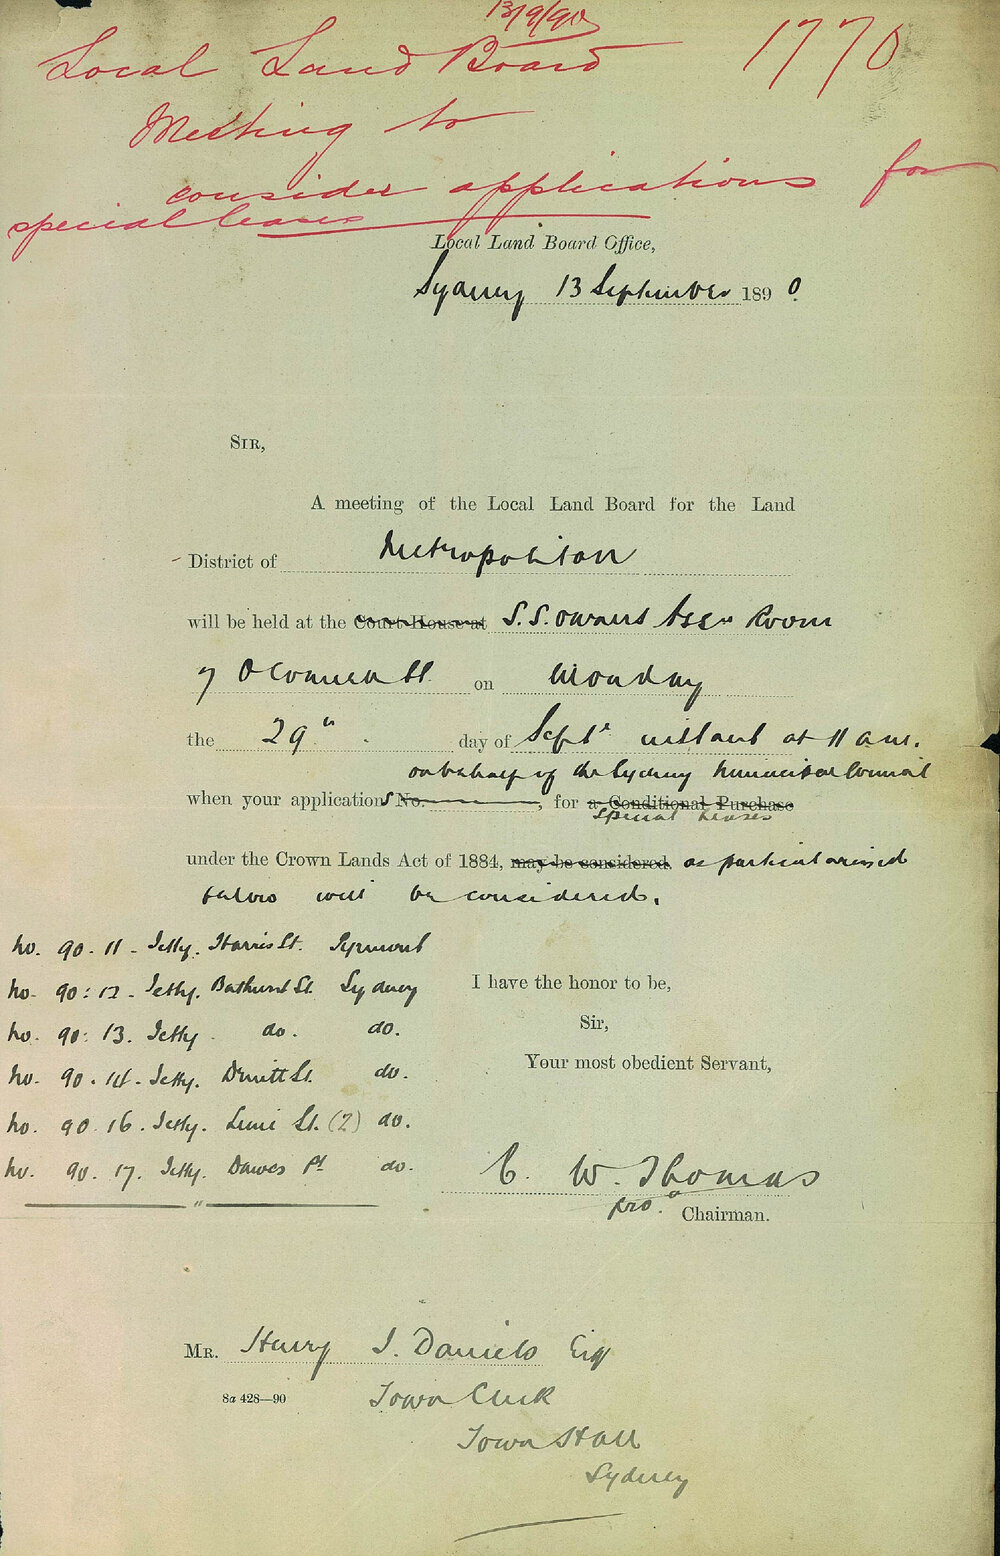 13/9/90
Local Land Board 1770
Meeting to
consider applications for
special leases
Local Land Board Office,
Sydney 13 September 1890.
SIR,
A meeting of the Local Land Board for the Land
District of Metropolitan
will be held at the Court House at S.S. owners Assn Room
7 O'Connell St. on Monday
the 29th day of Septr instant at 11 am.
on behalf of the Sydney Municipal Council
when your applications No. , for a Conditional Purchase
special leases
under the Crown Lands Act of 1884, may be considered, as particularised
below will be considered.
No. 90.11 - Jetty. Harris St. Pyrmont
No. 90:12 - Jetty. Bathurst St. Sydney
No. 90:13. Jetty. do. do.
No. 90.14 - Jetty. Druitt St. do.
No. 90.16. Jetty. Lime St. (2) do.
No. 90.17. Jetty. Dawes Pt do.
I have the honor to be,
Sir,
Your most obedient Servant,
C. W. Thomas
pro. Chairman.
MR. Henry J. Daniels Esq
8a 428—90
Town Clerk
Town Hall
Sydney